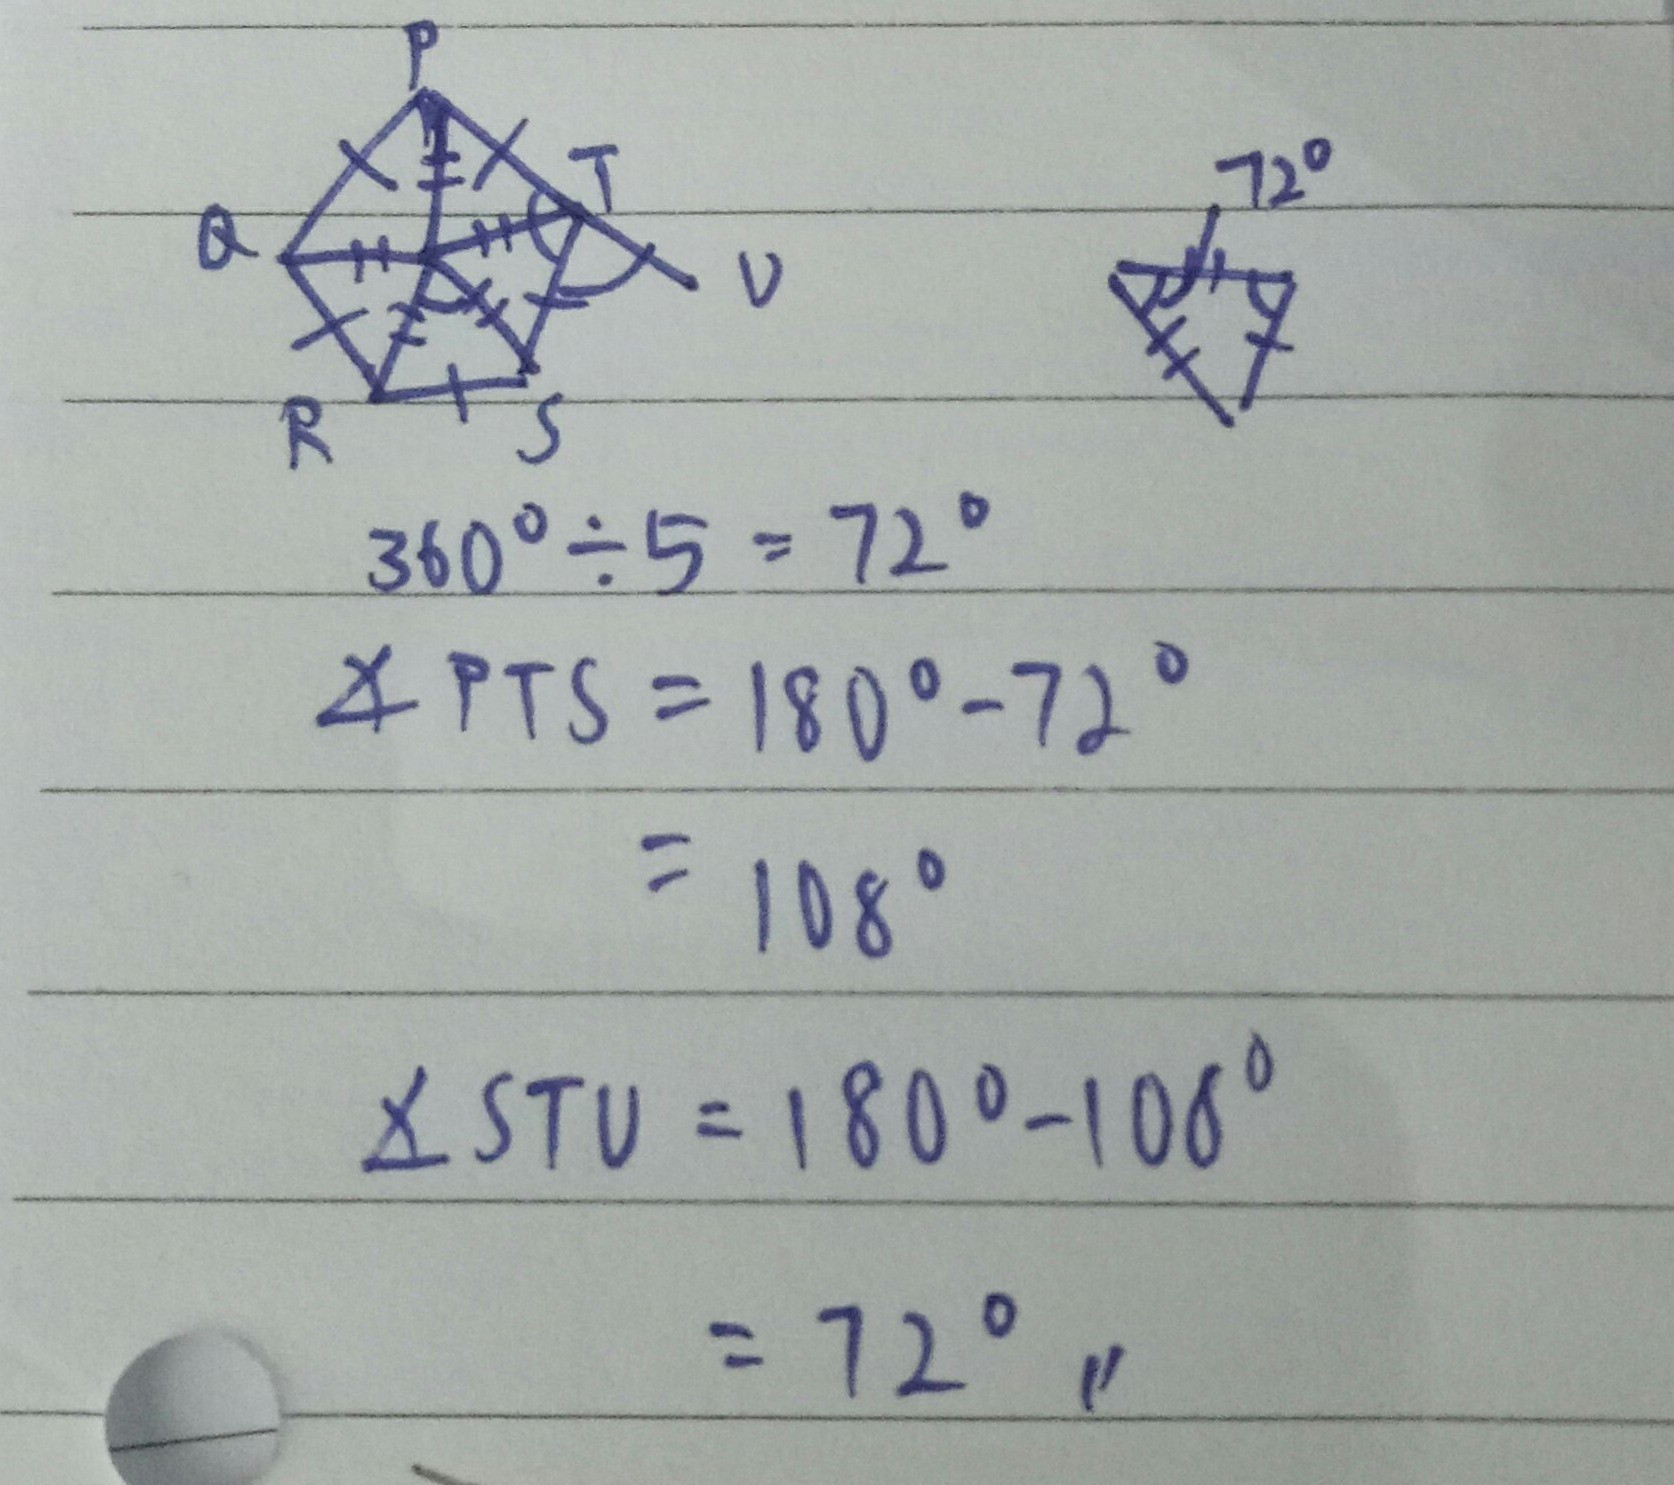 P
T
72°
Q
U
R
S
360° ÷ 5 = 72°
∡ PTS = 180° - 72°
= 108°
∡ STU = 180° - 108°
= 72°〃